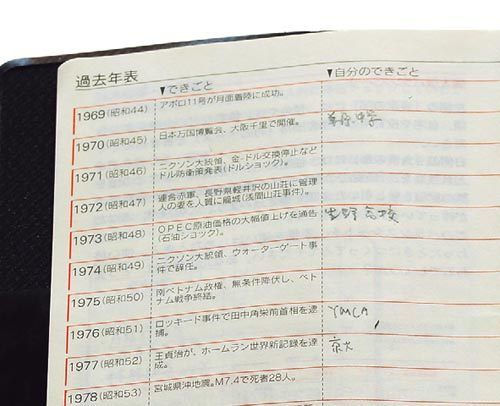 過去年表
▼できごと
▼自分のできごと
1969(昭和44)
アポロ11号が月面着陸に成功。
1970(昭和45)
日本万国博覧会、大阪千里で開催。
中学
1971(昭和46)
ニクソン大統領、金・ドル交換停止など
ドル防衛策発表(ドルショック)。
1972(昭和47)
連合赤軍、長野県軽井沢の山荘に管理
人の妻を人質に籠城(浅間山荘事件)。
1973(昭和48)
OPEC原油価格の大幅値上げを通告
(石油ショック)。
生野高校
1974(昭和49)
ニクソン大統領、ウォーターゲート事
件で辞任。
1975(昭和50)
南ベトナム政権、無条件降伏し、ベト
ナム戦争終結。
1976(昭和51)
ロッキード事件で田中角栄前首相を逮
捕。
YMCA
1977(昭和52)
王貞治が、ホームラン世界新記録を達
成。
京大
1978(昭和53)
宮城県沖地震。M7.4で死者28人。